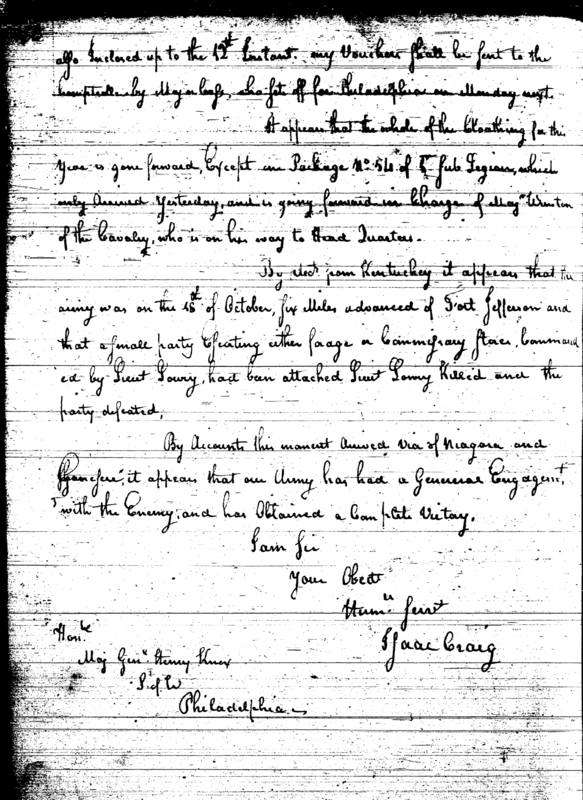 also Inclosed up to the 12th Instant. my Vouchers Shall be sent to the
Comptroller by Major who set off for Philadelphia on Monday next
It appears that the whole of the Cloathing for this
Year is gone forward, Except one Package No 54 of Sub Legion, which
only Arrived Yesterday, and is going forward in Charge of Majr Winston
of the Cavalry, who is on his way to Head Quarters.
By from Kentucky it appears that the
army was on the of October, six Miles advanced of Fort Jefferson and
that a small party Escorting either forage or Commissary Stores, Command
ed by Lieut Lowry, had been attacked Lieut Lowry Killed and the
party defeated,
By Accounts this moment Arrived Via of Niagara and
it appears that our Army has had a General Engagemt
with the Enemy, and has Obtained a Complete Victory.
I am Sir
Your Obedt
Humle Servt
Isaac Craig
Honble
Maj Genl Henry Knox
S of W
Philadelphia